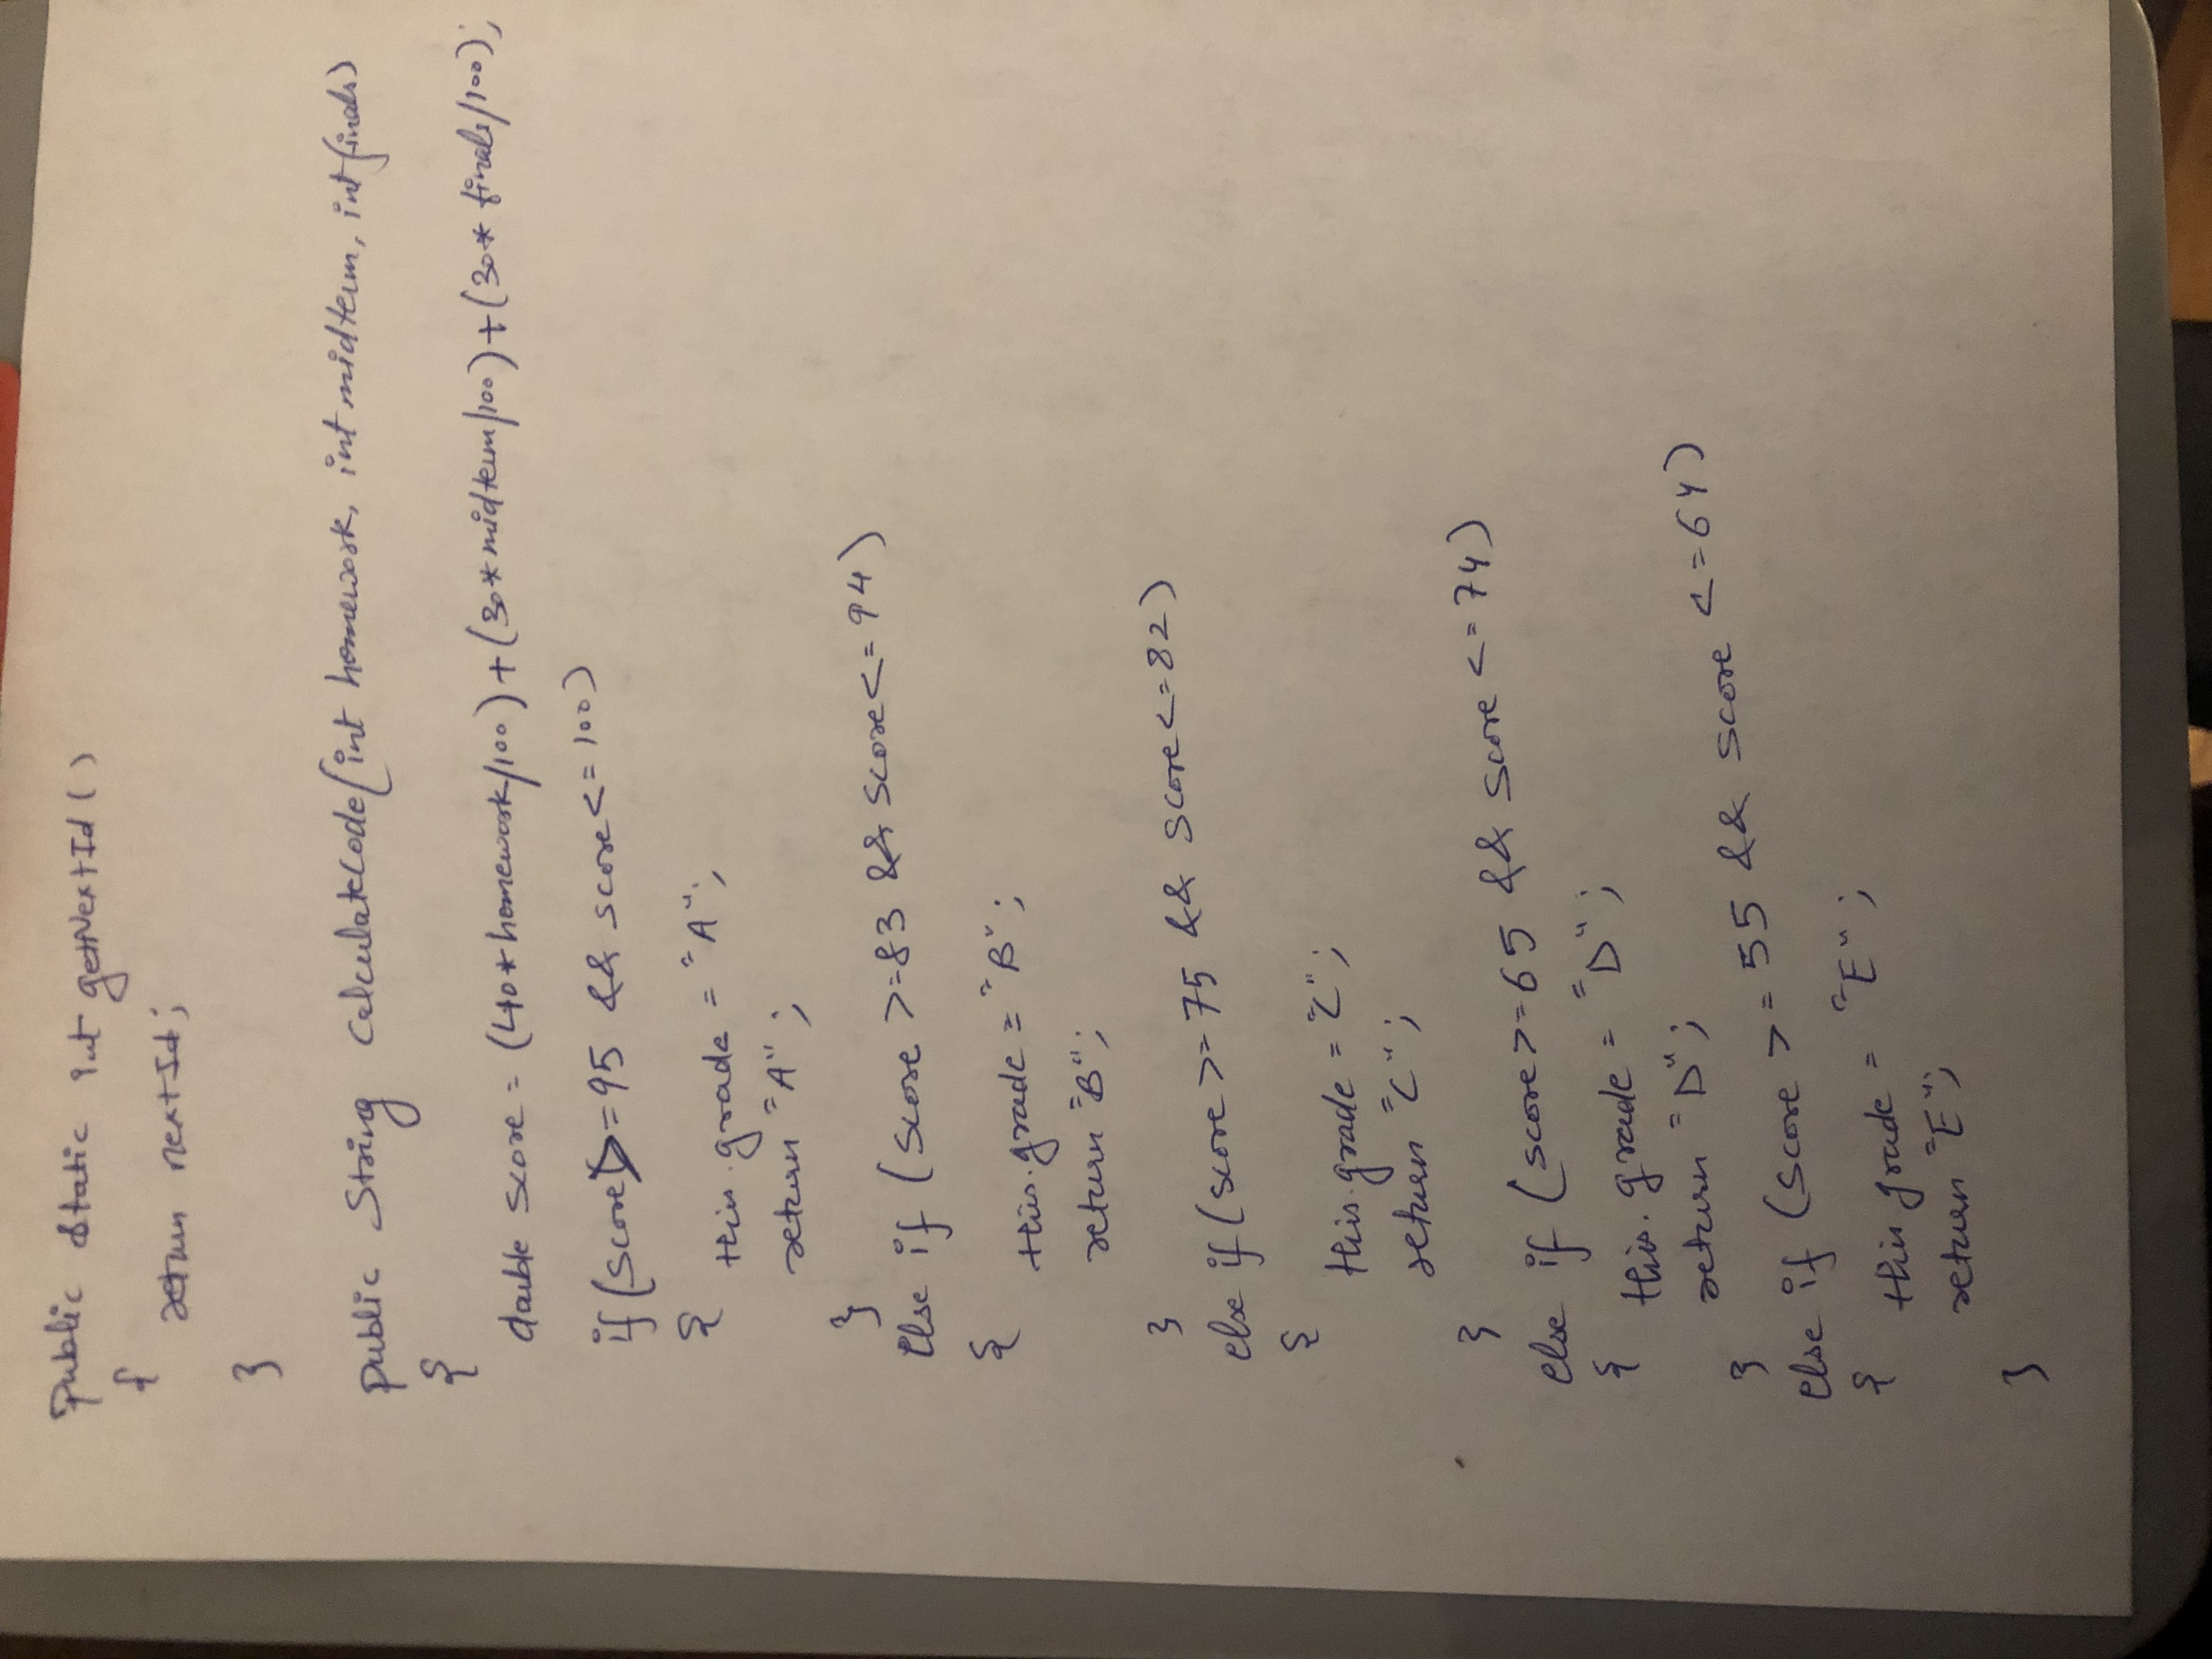 public static int getNextId ()
{
return nextId;
}
public String CalculateCode(int homework, int midterm, int finals)
{
double score = (40*homework/100)+(30*midterm/100)+(30* finals/100);
if (score>=95 && score<=100)
{ this.grade = "A";
return "A";
}
Else if (Score >=83 && score<=94)
{
this.grade = "B";
return "B";
}
else if (score >= 75 && score<=82)
{
this.grade = "C";
return "C";
}
else if (score>=65 && score <=74)
{ this.grade = "D";
return "D";
}
else if (Score >= 55 && score <=64)
{ this grade = "E";
return "E";
}